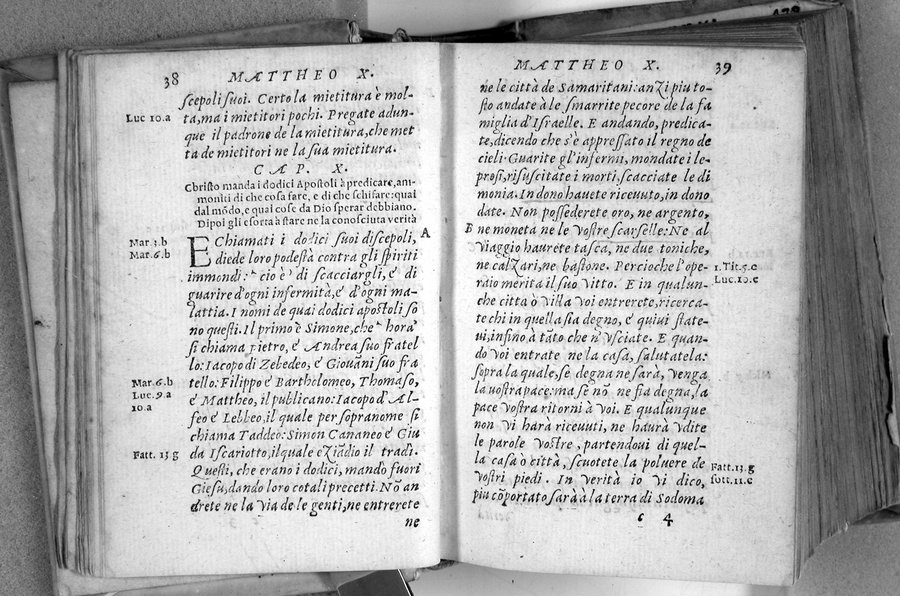 38 MATTHEO X.
scepoli suoi. Certo la mietitura è mol-
Luc 10.a ta, ma i mietitori pochi. Pregate adun-
que il padrone de la mietitura, che met
ta de mietitori ne la sua mietitura.
CAP. X.
Christo manda i dodici Apostoli à predicare, am-
moniti di che cosa fare, e di che schifare: quai
dal mõdo, e quai cose da Dio sperar debbiano.
Dipoi gli esorta à stare ne la conosciuta verità
Mar. 3.b E Chiamati i dodici suoi discepoli, A
Mar. 6.b diede loro podestà contra gli spiriti
immondi: cio è di scacciargli, e di
guarire d'ogni infermità, e d'ogni ma-
lattia. I nomi de quai dodici apostoli so
no questi. Il primo è Simone, che hora
si chiama Pietro, e Andrea suo fratel
lo: Iacopo di Zebedeo, e Giovãni suo fra
Mar. 6.b tello: Filippo e Bartholomeo, Thomaso,
Luc. 9.a e Mattheo, il publicano: Iacopo d'Al-
10.a feo e Lebbeo, il quale per sopranome si
chiama Taddeo: Simon Cananeo e Giu
Fatt. 13 g da Iscariotto, il quale eziãdio il tradì.
Questi, che erano i dodici, mandò fuori
Giesu, dando loro cotali precetti. Nõ an
drete ne la via de le genti, ne entrerete
ne
MATTHEO X. 39
ne le città de Samaritani: anzi piu to-
sto andate à le smarrite pecore de la fa
miglia d'Israelle. E andando, predica-
te, dicendo che s'è appressato il regno de
cieli. Guarite gl'infermi, mondate i le-
prosi, risuscitate i morti, scacciate le di
monia. In dono havete ricevuto, in dono
date. Non possederete oro, ne argento,
B ne moneta ne le vostre scarselle: Ne al
viaggio haurete tasca, ne due toniche,
ne calzari, ne bastone. Percioche l'ope- 1. Tit. 5.c
raio merita il suo vitto. E in qualun- Luc. 10.c
che città o villa voi entrerete, ricerca-
te chi in quella sia degno, e quivi state-
vi, infino à tãto che n'usciate. E quan-
do voi entrate ne la casa, salutatela:
sopra la quale, se degna ne sarà, venga
la vostra pace: ma se nõ ne sia degna, la
pace vostra ritorni à voi. E qualunque
non vi harà ricevuti, ne haurà udite
le parole vostre, partendovi di quel-
la casa ò città, scuotete la polvere de Fatt. 13.g
vostri piedi. In verità io vi dico, sott. 11.c
piu cõportato sarà à la terra di Sodoma
c 4